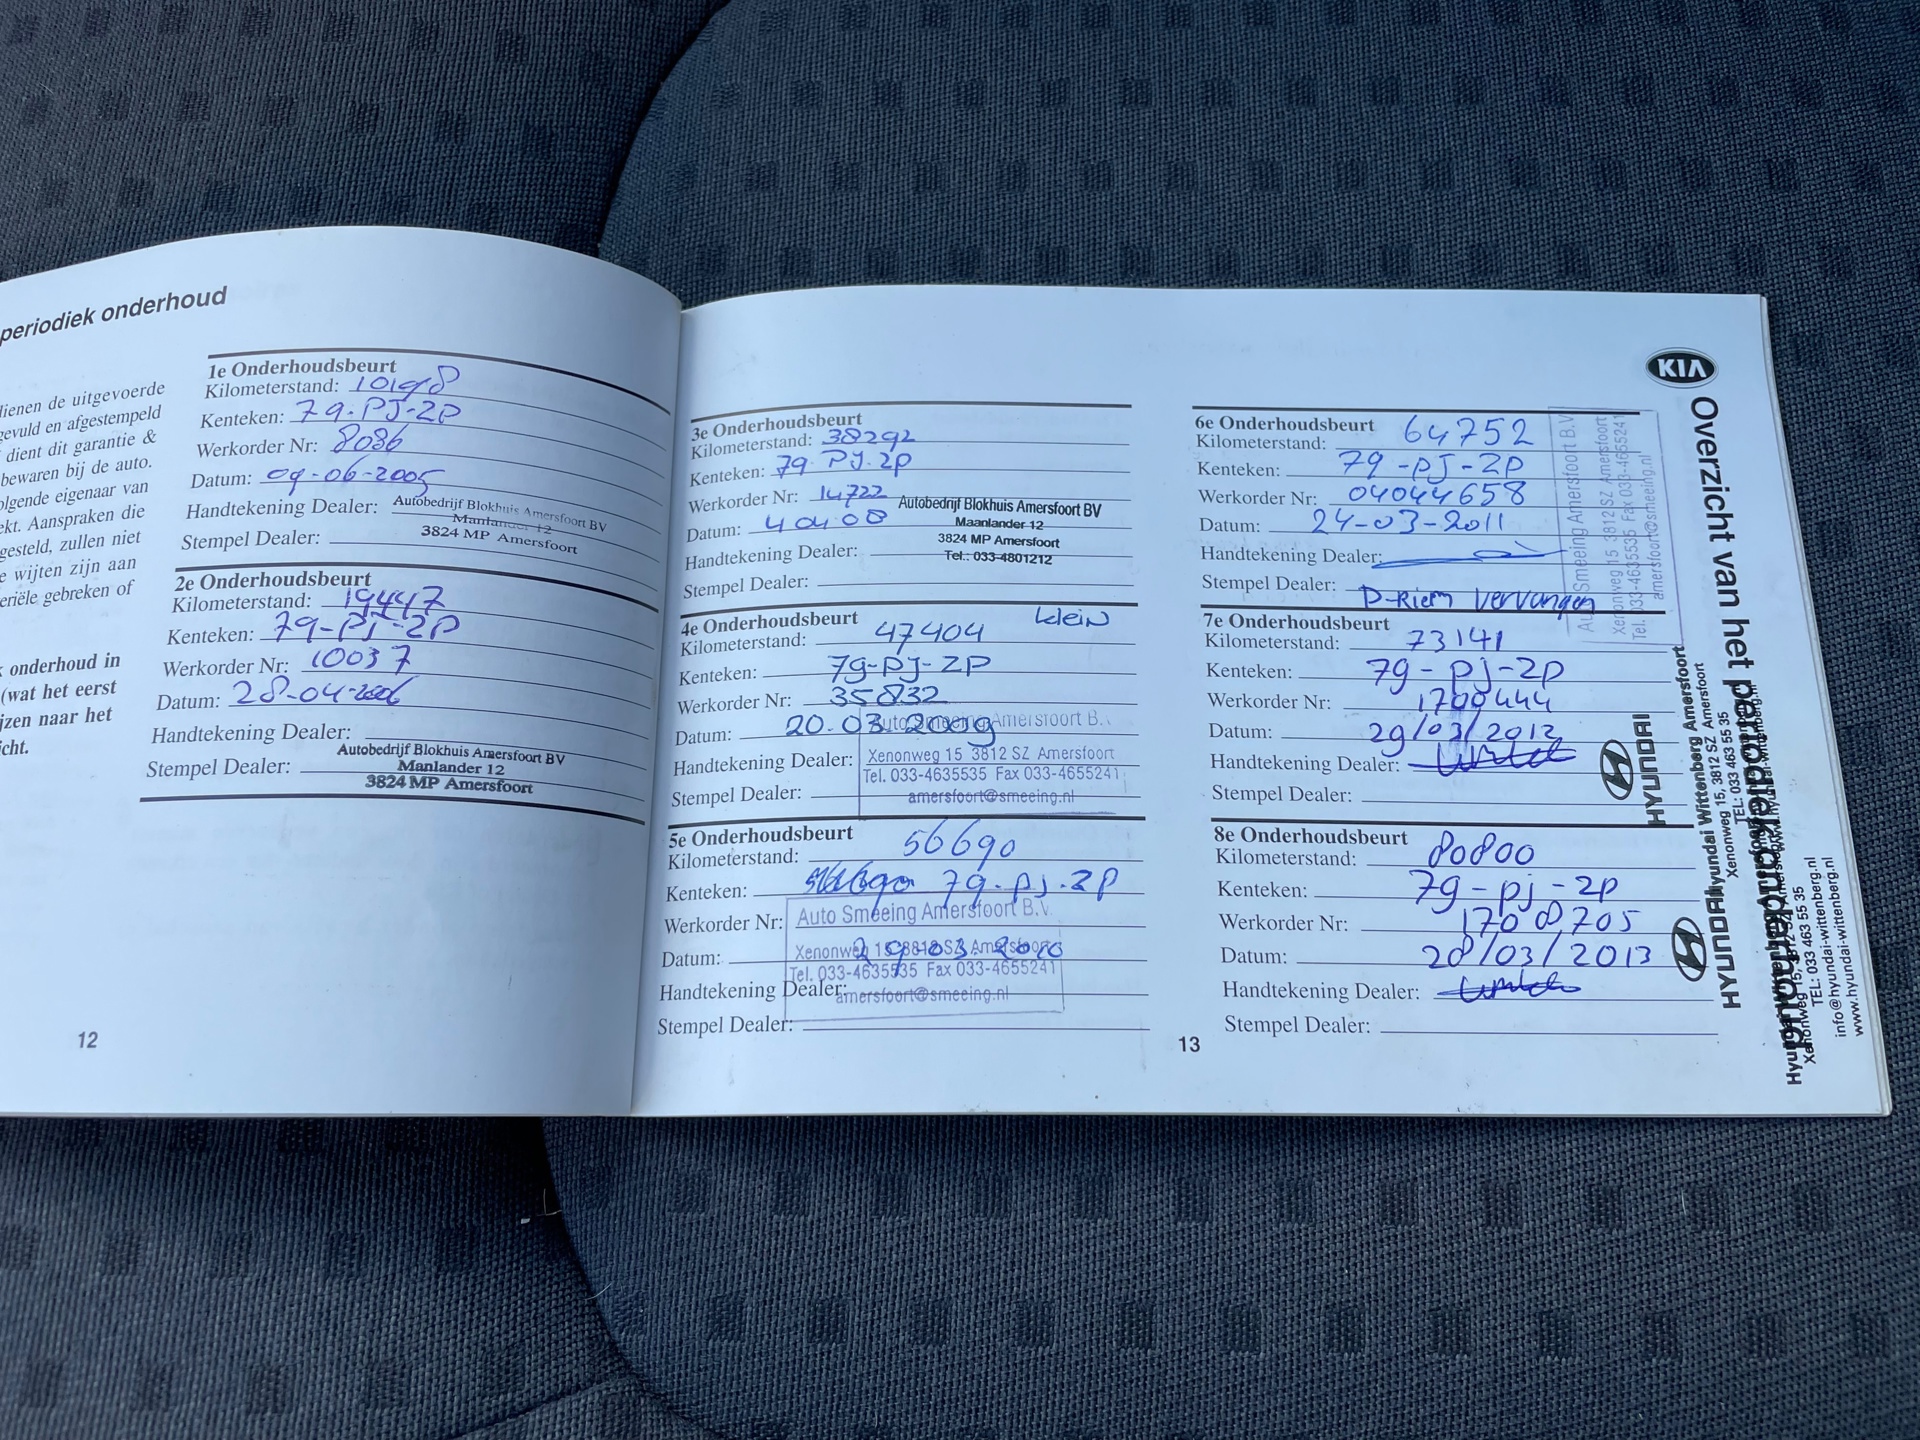 periodiek onderhoud
dienen de uitgevoerde
gevuld en afgestempeld
dient dit garantie &
bewaren bij de auto.
olgende eigenaar van
ekt. Aanspraken die
gesteld, zullen niet
e wijten zijn aan
eriële gebreken of
k onderhoud in
(wat het eerst
jzen naar het
icht.
1e Onderhoudsbeurt
Kilometerstand: 10198
Kenteken: 79-PJ-2P
Werkorder Nr: 8086
Datum: 09-06-2005
Handtekening Dealer:
Autobedrijf Blokhuis Amersfoort BV
Manlander 12
3824 MP Amersfoort
Stempel Dealer:
2e Onderhoudsbeurt
Kilometerstand: 19447
Kenteken: 79-PJ-2P
Werkorder Nr: 10037
Datum: 28-04-2006
Handtekening Dealer:
Stempel Dealer:
Autobedrijf Blokhuis Amersfoort BV
Manlander 12
3824 MP Amersfoort
12
3e Onderhoudsbeurt
Kilometerstand: 38292
Kenteken: 79-PJ-2P
Werkorder Nr: 14722
Datum: 4 04 08
Handtekening Dealer:
Autobedrijf Blokhuis Amersfoort BV
Maanlander 12
3824 MP Amersfoort
Tel.: 033-4801212
Stempel Dealer:
4e Onderhoudsbeurt klein
Kilometerstand: 47404
Kenteken: 79-PJ-2P
Werkorder Nr: 35832
Datum: 20.03.2009
Handtekening Dealer:
Stempel Dealer:
Auto Smeeing Amersfoort B.V.
Xenonweg 15 3812 SZ Amersfoort
Tel. 033-4635535 Fax 033-4655241
amersfoort@smeeing.nl
5e Onderhoudsbeurt
Kilometerstand: 56690
Kenteken: 79-PJ-2P
Werkorder Nr:
Datum: 29-03-2010
Handtekening Dealer:
Stempel Dealer:
Auto Smeeing Amersfoort B.V.
Xenonweg 15 3812 SZ Amersfoort
Tel. 033-4635535 Fax 033-4655241
amersfoort@smeeing.nl
6e Onderhoudsbeurt
Kilometerstand: 64752
Kenteken: 79-PJ-2P
Werkorder Nr: 04044658
Datum: 24-03-2011
Handtekening Dealer:
Stempel Dealer: D-Riem vervangen
Auto Smeeing Amersfoort B.V.
Xenonweg 15 3812 SZ Amersfoort
Tel. 033-4635535 Fax 033-4655241
amersfoort@smeeing.nl
7e Onderhoudsbeurt
Kilometerstand: 73141
Kenteken: 79-PJ-2P
Werkorder Nr: 1700444
Datum: 29/03/2012
Handtekening Dealer:
Stempel Dealer:
HYUNDAI
Hyundai Wittenberg Amersfoort
Xenonweg 15, 3812 SZ Amersfoort
TEL: 033 463 55 35
8e Onderhoudsbeurt
Kilometerstand: 80800
Kenteken: 79-PJ-2P
Werkorder Nr: 1708705
Datum: 28/03/2013
Handtekening Dealer:
Stempel Dealer:
HYUNDAI
Xenonweg 15, 3812 SZ
TEL: 033 463 55 35
info@hyundai-wittenberg.nl
www.hyundai-wittenberg.nl
13
KIA
Overzicht van het periodiek onderhoud